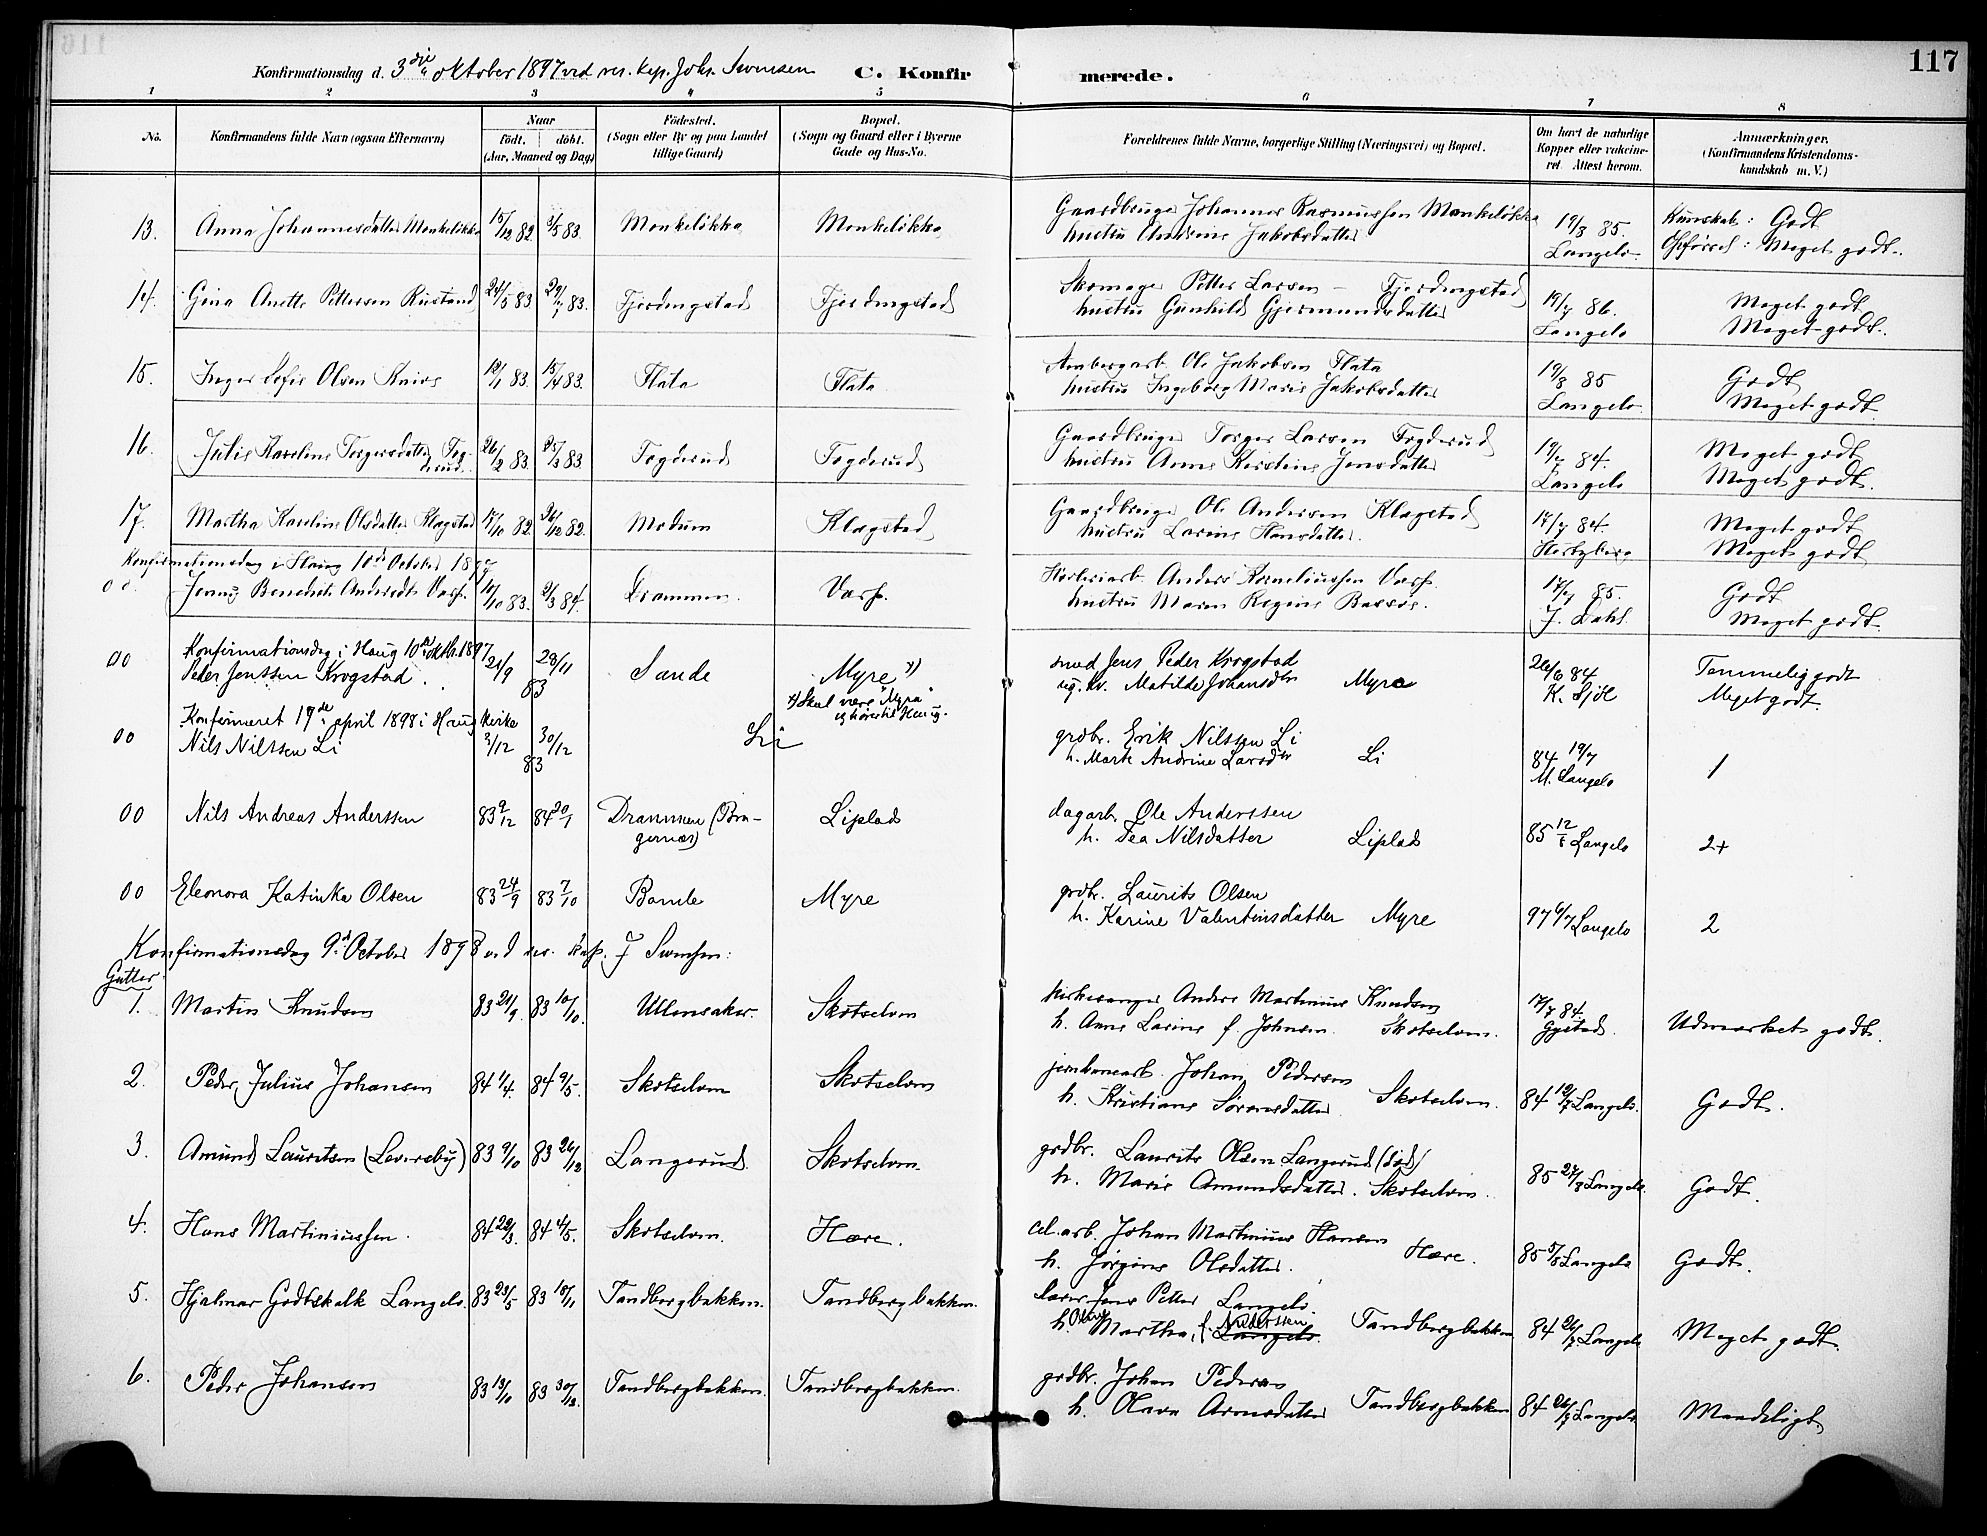 117
Konfirmationsdag d. 3die oktober 1897 ved res. kap. Johs. Svensen C. Konfirmerede.
1 2 3 4 5 6 7 8
No. Konfirmandens fulde Navn (ogsaa Efternavn) Naar født. døbt. (Aar, Maaned og Dag) Fødested. (Sogn eller By og paa Landet tillige Gaard) Bopæl. (Sogn og Gaard eller i Byerne Gade og Hus-No. Forældrenes fulde Navne, borgerlige Stilling (Næringsvei) og Bopæl. Om havt de naturlige Kopper eller vaccineret. Attest herom. Anmærkninger. (Konfirmandens Kristendomskundskab m. V.)
13. Anna Johannesdatter Monkeløkka 15/12 82 3/5 83. Monkeløkka Monkeløkka Gaardbruger Johannes Rasmussen Monkeløkka 19/8 85. Kunskab: Godt
hustru Andrine Jakobsdatter Langelo Opførsel: Meget godt.
14. Gina Anette Pettersen Rustand 24/5 83 29/7 83. Fjerdingstad Fjerdingstad Skomager Petter Larsen – Fjerdingstad 19/7 86. Meget godt
hustru Gunhild Gjermundsdatter Langelo Meget godt.
15. Inger Sofie Olsen 19/1 83. 15/4 83. Flata Flata Ole Jakobsen Flata 19/8 85 Godt
hustru Ingeborg Marie Jakobsdatter Langelo Meget godt.
16. Julie Karoline Torgersdatter Fogderud 26/2 83. 25/3 83. Fogderud Fogderud Gaardbruger Torger Larsen Fogderud 19/7 84. Meget godt
hustru Anne Kirstine Jensdatter Langelo Meget godt.
17. Martha Karoline Olsdatter Klogstad 17/10 82 26/12 82. Modum Klogstad Gaardbruger Ole Andersen Klogstad 17/7 84. Meget godt
hustru Larine Hansdatter. Hertzberg Meget godt
Konfirmationsdag i 10de October 1897
00. Jenny Benedicte 10/10 83. 2/3 84. Drammen. Anders Korneliussen 17/7 85. Godt
hustru Maren Regine J. Dahl. Meget godt.
Konfirmationsdag i Haug 10de oktbr. 1897
00 Peder Jenssen Krogstad. 21/9 28/11 83 Sande Myre x) smed Jens Peder Krogstad 26/6 84 Temmelig godt
Matilde Johansdtr Myre Meget godt.
x) Skal være "Myra" og høre til Haug.
Konfirmeret 17de april 1898 i Haug kirke
00 Nils Nilssen Li 3/12 30/12 83 Li grdbr. Erik Nilssen Li 84 19/7 1
h. Marte Andrine Larsdtr Li M. Langelo
00 Nils Andreas Anderssen 83 9/12 84 20/1 Drammen (Bragernæs) Liplad dagarb. Ole Anderssen 85 Langelo 2+
h. Tea Nilsdatter Liplad
00 Eleonora Katinka Olsen 83 24/9 83 7/10 Myre grdbr. Laurits Olsen 97 6/7 Langelo 2
h. Karine Valentinsdatter Myre
Konfirmationsdag 9de October 1898 ved res. kap. J Svensen:
Gutter
1. Martin Knudsen 83 21/9. 83 10/10. Ullensaker. Skotselven kirkesanger Anders Martinius Knudsen 17/7 84
h. Anne Larine f. Johnsen Skotselven. Udmærket godt.
2. Peder Julius Johansen 84 1/4. 84 9/5. Skotselven Skotselven jernbanearb. Johan Pedersen 84 19/7 Langelo. Godt.
h. Kristiane Sørensdatter Skotselven.
3. Amund Lauritsen (Leversby) 83 9/10 83 26/12 Langerud. Skotselven grdbr. Laurits Olsen Langerud (død)
h. Marie Amundsdatter. Skotselven. 85 27/8 Langelo. Godt.
4. Hans Martiniussen. 84 22/3. 84 4/5. Skotselven. Hære. cel. arb. Johan Martinius Hansen
h. Jørgine Olsdatter. Hære. 85 5/8 Langelo Godt.
5. Hjalmar Godtskalk Langelo. 83 23/5 83 18/11 Tandbergbakken. Tandbergbakken. lærer Jens Petter Langelo.
h. Olava Martha, f. Anderssen Tandbergbakken 84 26/7 Langelo Meget godt.
6. Peder Johansen 83 13/10 83 30/12. Tandbergbakken. Tandbergbakken. grdbr. Johan Pedersen
h. Olava Arnesdatter Tandbergbakken 84 26/7 Langelo Maadeligt.